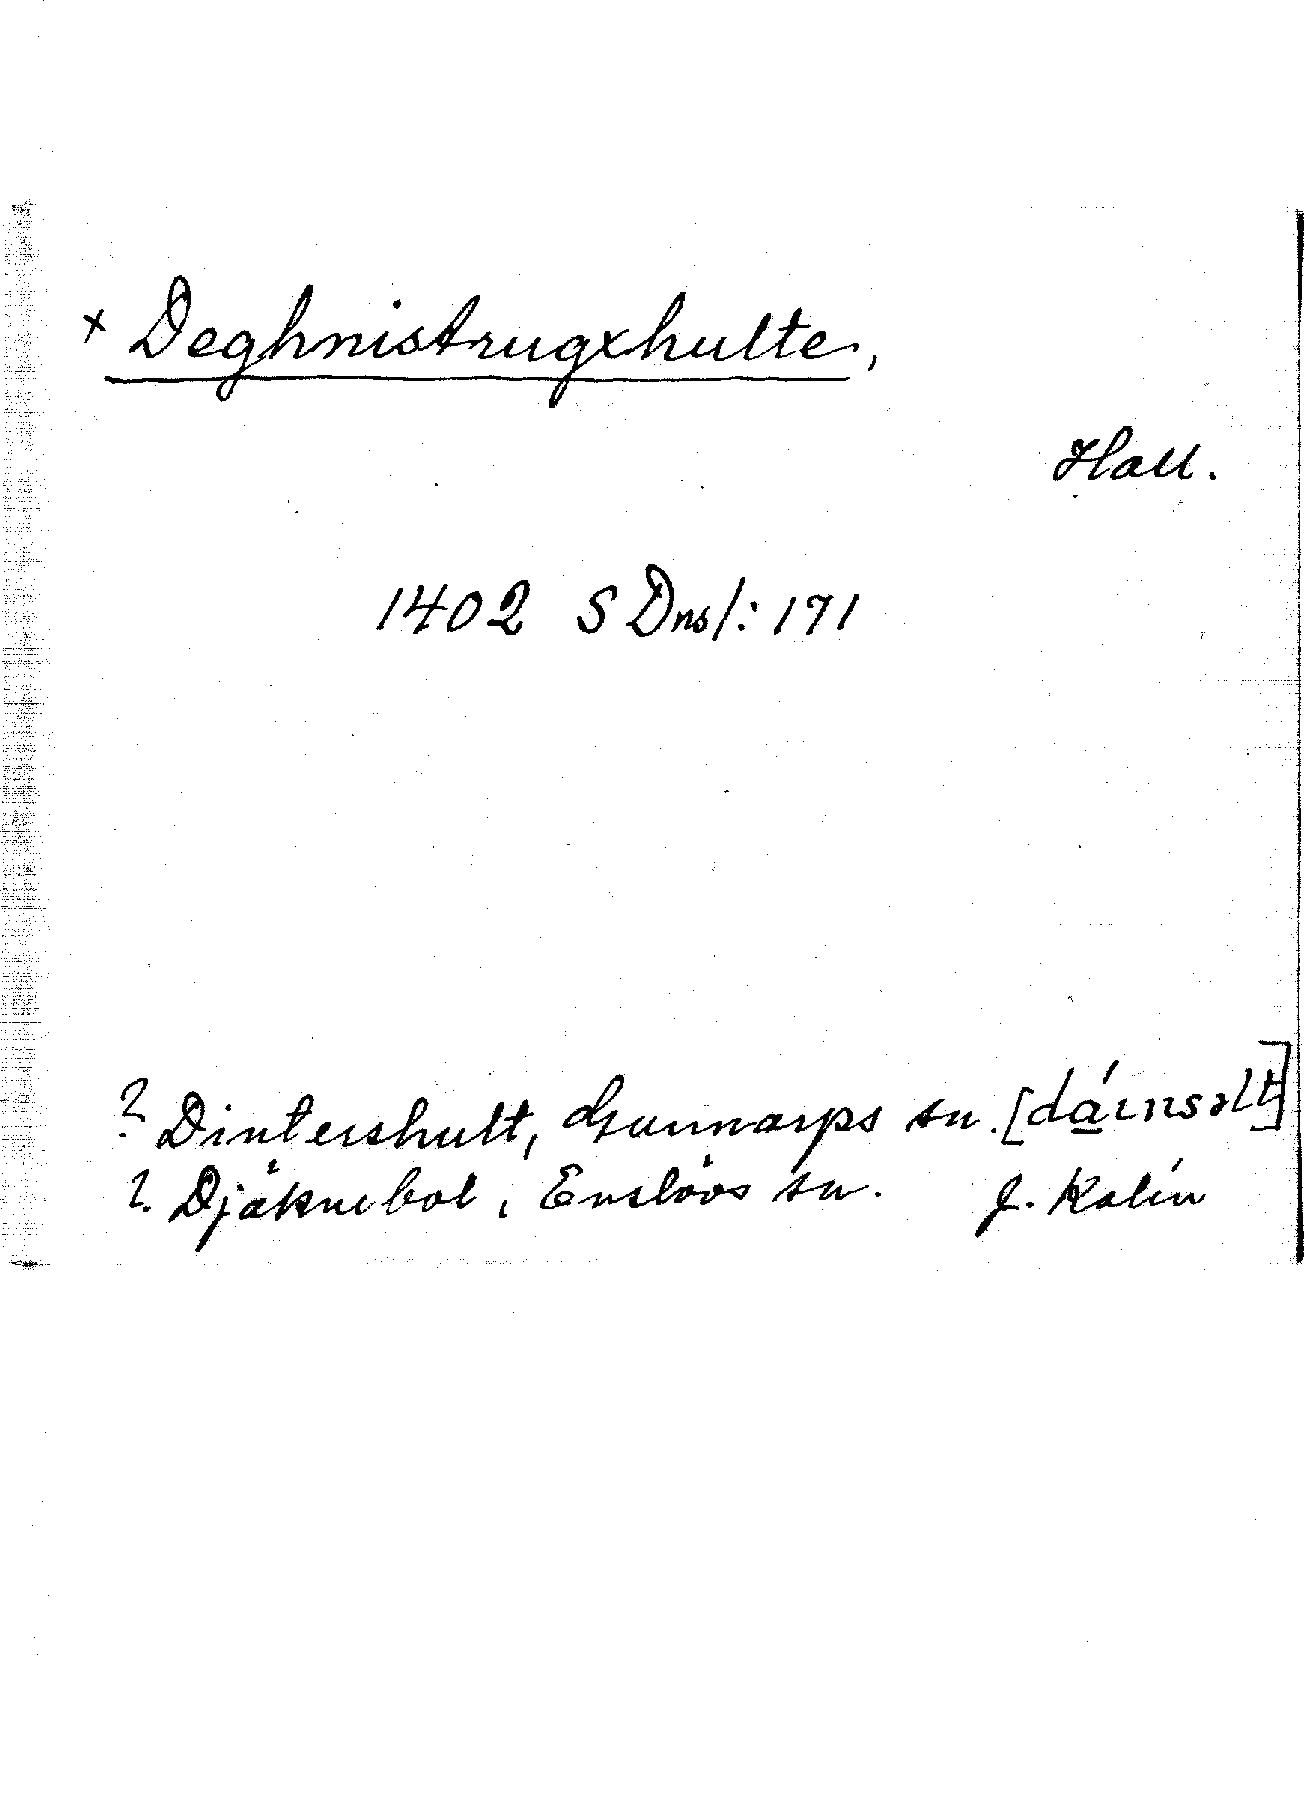 × Deghnistrugxhulte,
Hall.
1402 S Dns1: 171
? Dintershult, Gunnarps sn. [dáɪnsəlt]
?. Djäknebol, Enslövs sn. J. Kalén